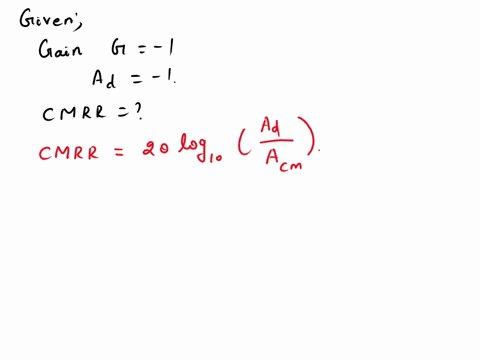 Given;
Gain G = -1
Ad = -1.
CMRR = ?
CMRR = 20 log10 (Ad/Acm).